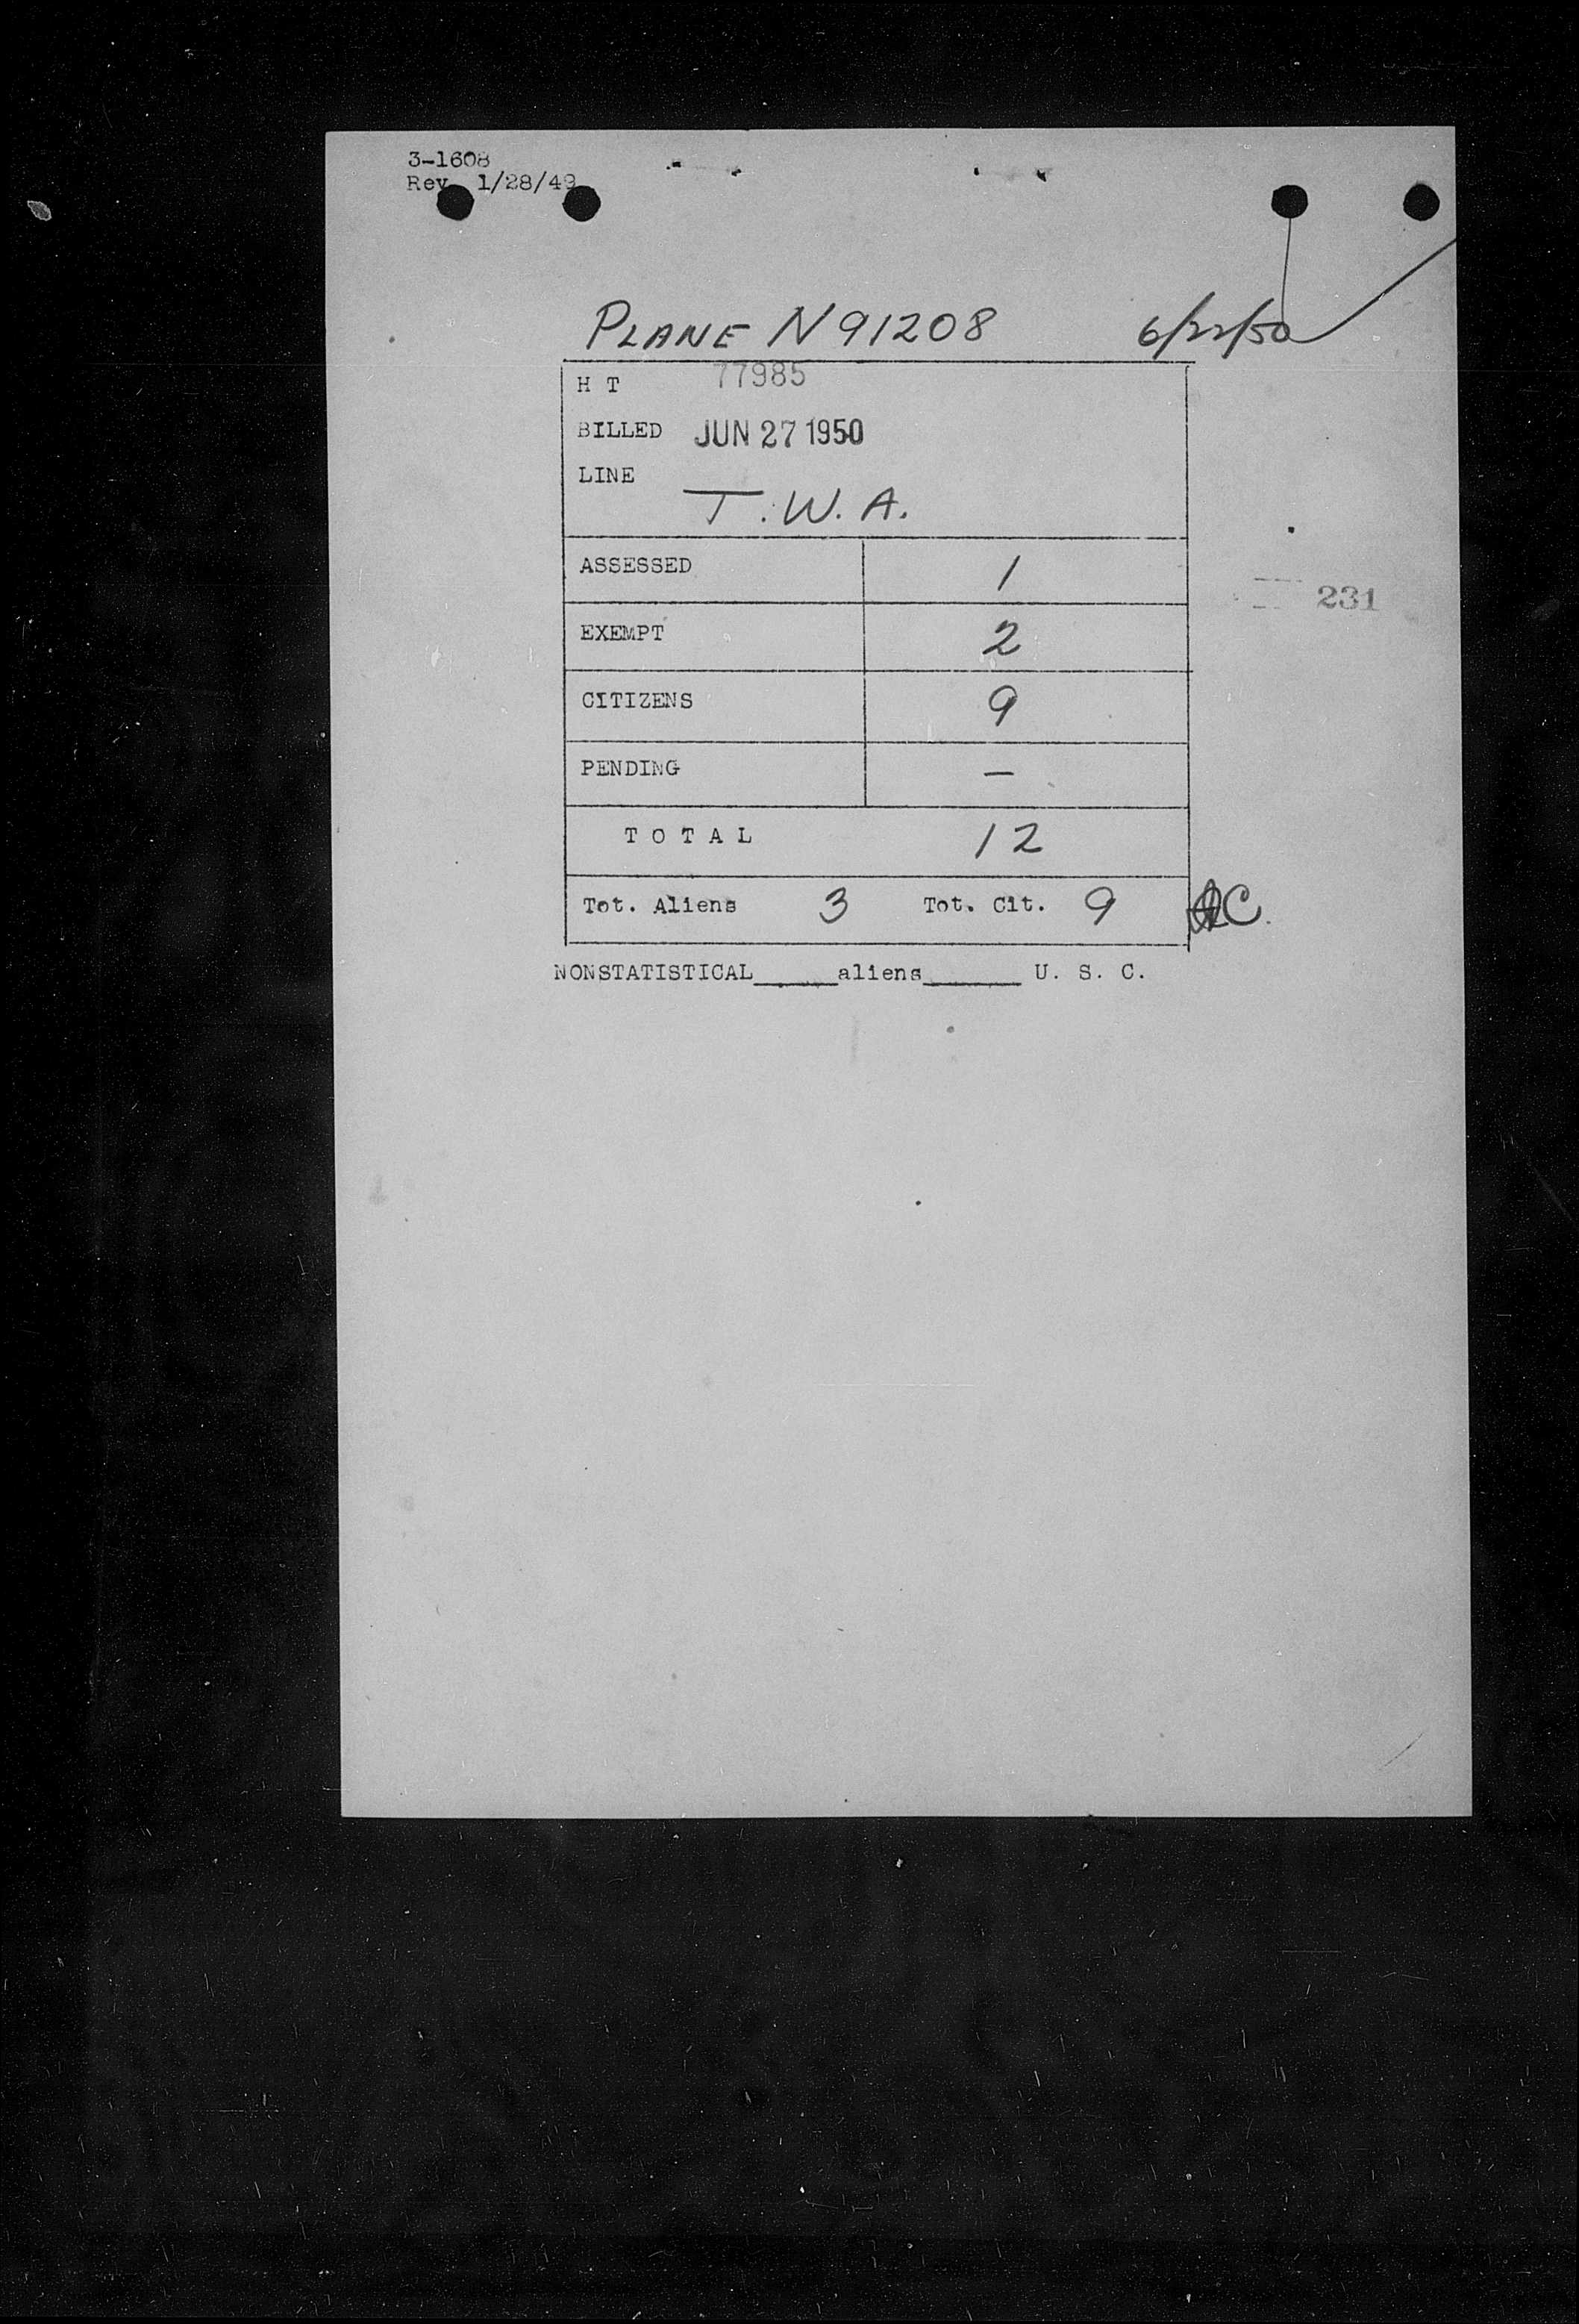 3-1608
Rev. 1/28/49
PLANE N91208 6/22/50
H T 77985
BILLED JUN 27 1950
LINE
T.W.A.
ASSESSED 1
231
EXEMPT 2
CITIZENS 9
PENDING —
TOTAL 12
Tot. Aliens 3 Tot. Cit. 9
NONSTATISTICAL_____aliens______ U. S. C.